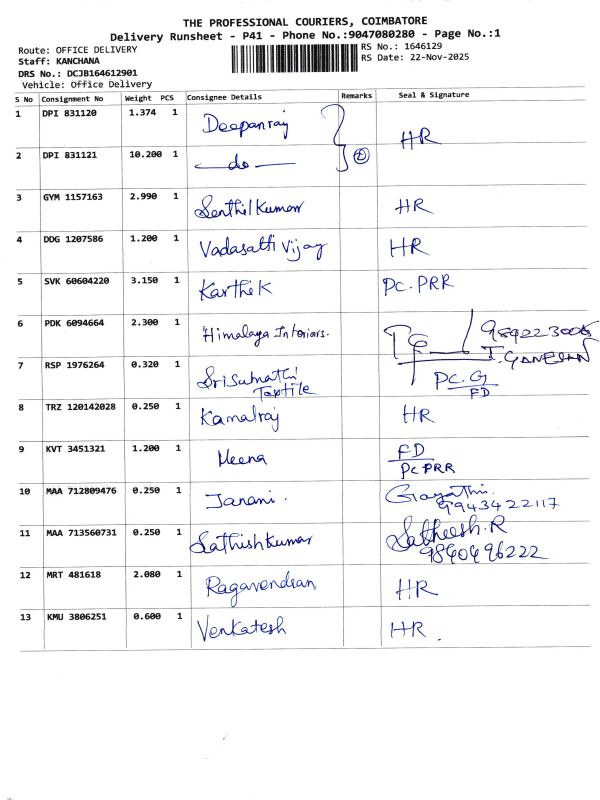 THE PROFESSIONAL COURIERS, COIMBATORE
Delivery Runsheet - P41 - Phone No.:9047080280 - Page No.:1
Route: OFFICE DELIVERY
RS No.: 1646129
Staff: KANCHANA
RS Date: 22-Nov-2025
DRS No.: DCJB164612901
Vehicle: Office Delivery
S No Consignment No Weight PCS Consignee Details Remarks Seal & Signature
1 DPI 831120 1.374 1 Deepanraj HR
2 DPI 831121 10.200 1 do ②
3 GYM 1157163 2.990 1 Senthil Kumar HR
4 DDG 1207586 1.200 1 Vadasatti Vijay HR
5 SVK 60604220 3.150 1 Karthik PC.PRR
6 PDK 6094664 2.300 1 Himalaya Interiors. 9894223006
T. GANESAN
7 RSP 1976264 0.320 1 Sri Sumathi PC.G
Textile FD
8 TRZ 120142028 0.250 1 Kamalraj HR
9 KVT 3451321 1.200 1 Meena FD
PC PRR
10 MAA 712809476 0.250 1 Janani. Gayathi.
9943422117
11 MAA 713560731 0.250 1 Sathishkumar Satheesh.R
9840496222
12 MRT 481618 2.080 1 Ragavendran HR
13 KMU 3806251 0.600 1 Venkatesh HR.